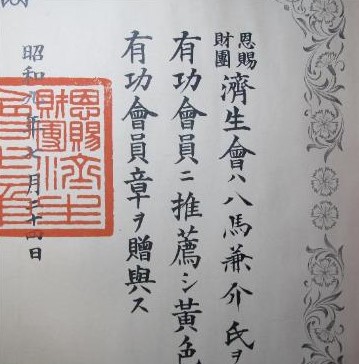 恩賜
財團
濟生會ハ八馬兼介氏ヲ
有功會員ニ推薦シ黃色
有功會員章ヲ贈與ス
昭和九年七月二十四日
恩賜
財團濟生